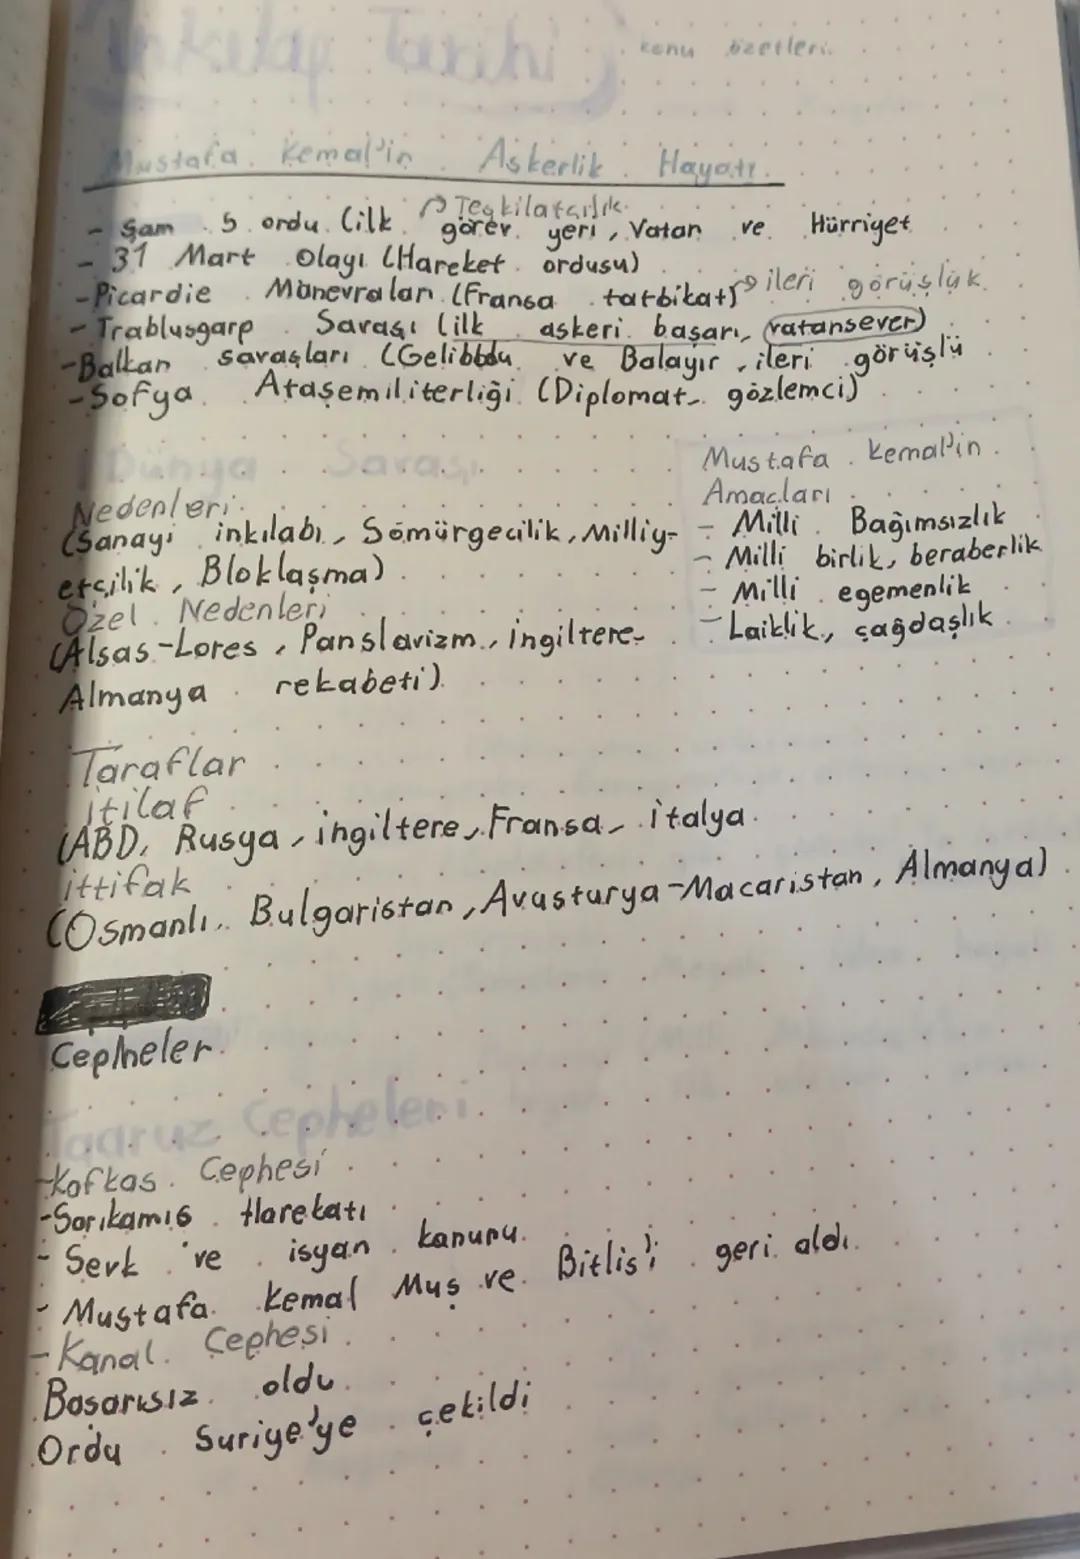 inkılap Tarihi konu özetleri
Mustafa Kemal'in Askerlik Hayatı
Teşkilatçılık
- Şam 5. ordu (ilk görev yeri, Vatan ve Hürriyet
- 31 Mart Olayı (Hareket ordusu)
- Picardie Manevraları (Fransa tatbikat) ileri görüşlük
- Trablusgarp Savaşı (ilk askeri başarı, vatansever)
- Balkan savaşları (Gelibolu ve Bolayır, ileri görüşlü
- Sofya Ataşemiliterliği (Diplomat, gözlemci)
1 Dünya Savaşı
Nedenleri
(Sanayi inkılabı, Sömürgecilik, Milliy-
etçilik, Bloklaşma)
Özel Nedenleri
(Alsas-Lores, Panslavizm, ingiltere-
Almanya rekabeti)
Mustafa Kemal'in
Amaçları
- Milli Bağımsızlık
- Milli birlik, beraberlik
- Milli egemenlik
- Laiklik, çağdaşlık
Taraflar
itilaf
(ABD, Rusya, ingiltere, Fransa, italya
ittifak
(Osmanlı, Bulgaristan, Avusturya-Macaristan, Almanya)
Cepheler
Taaruz Cepheleri
- Kafkas Cephesi
- Sarıkamıs Harekatı
- Sevk ve isyan kanunu
- Mustafa Kemal Muş ve Bitlis'i geri aldı.
- Kanal Cephesi
Basarısız oldu
Ordu Suriye'ye çekildi